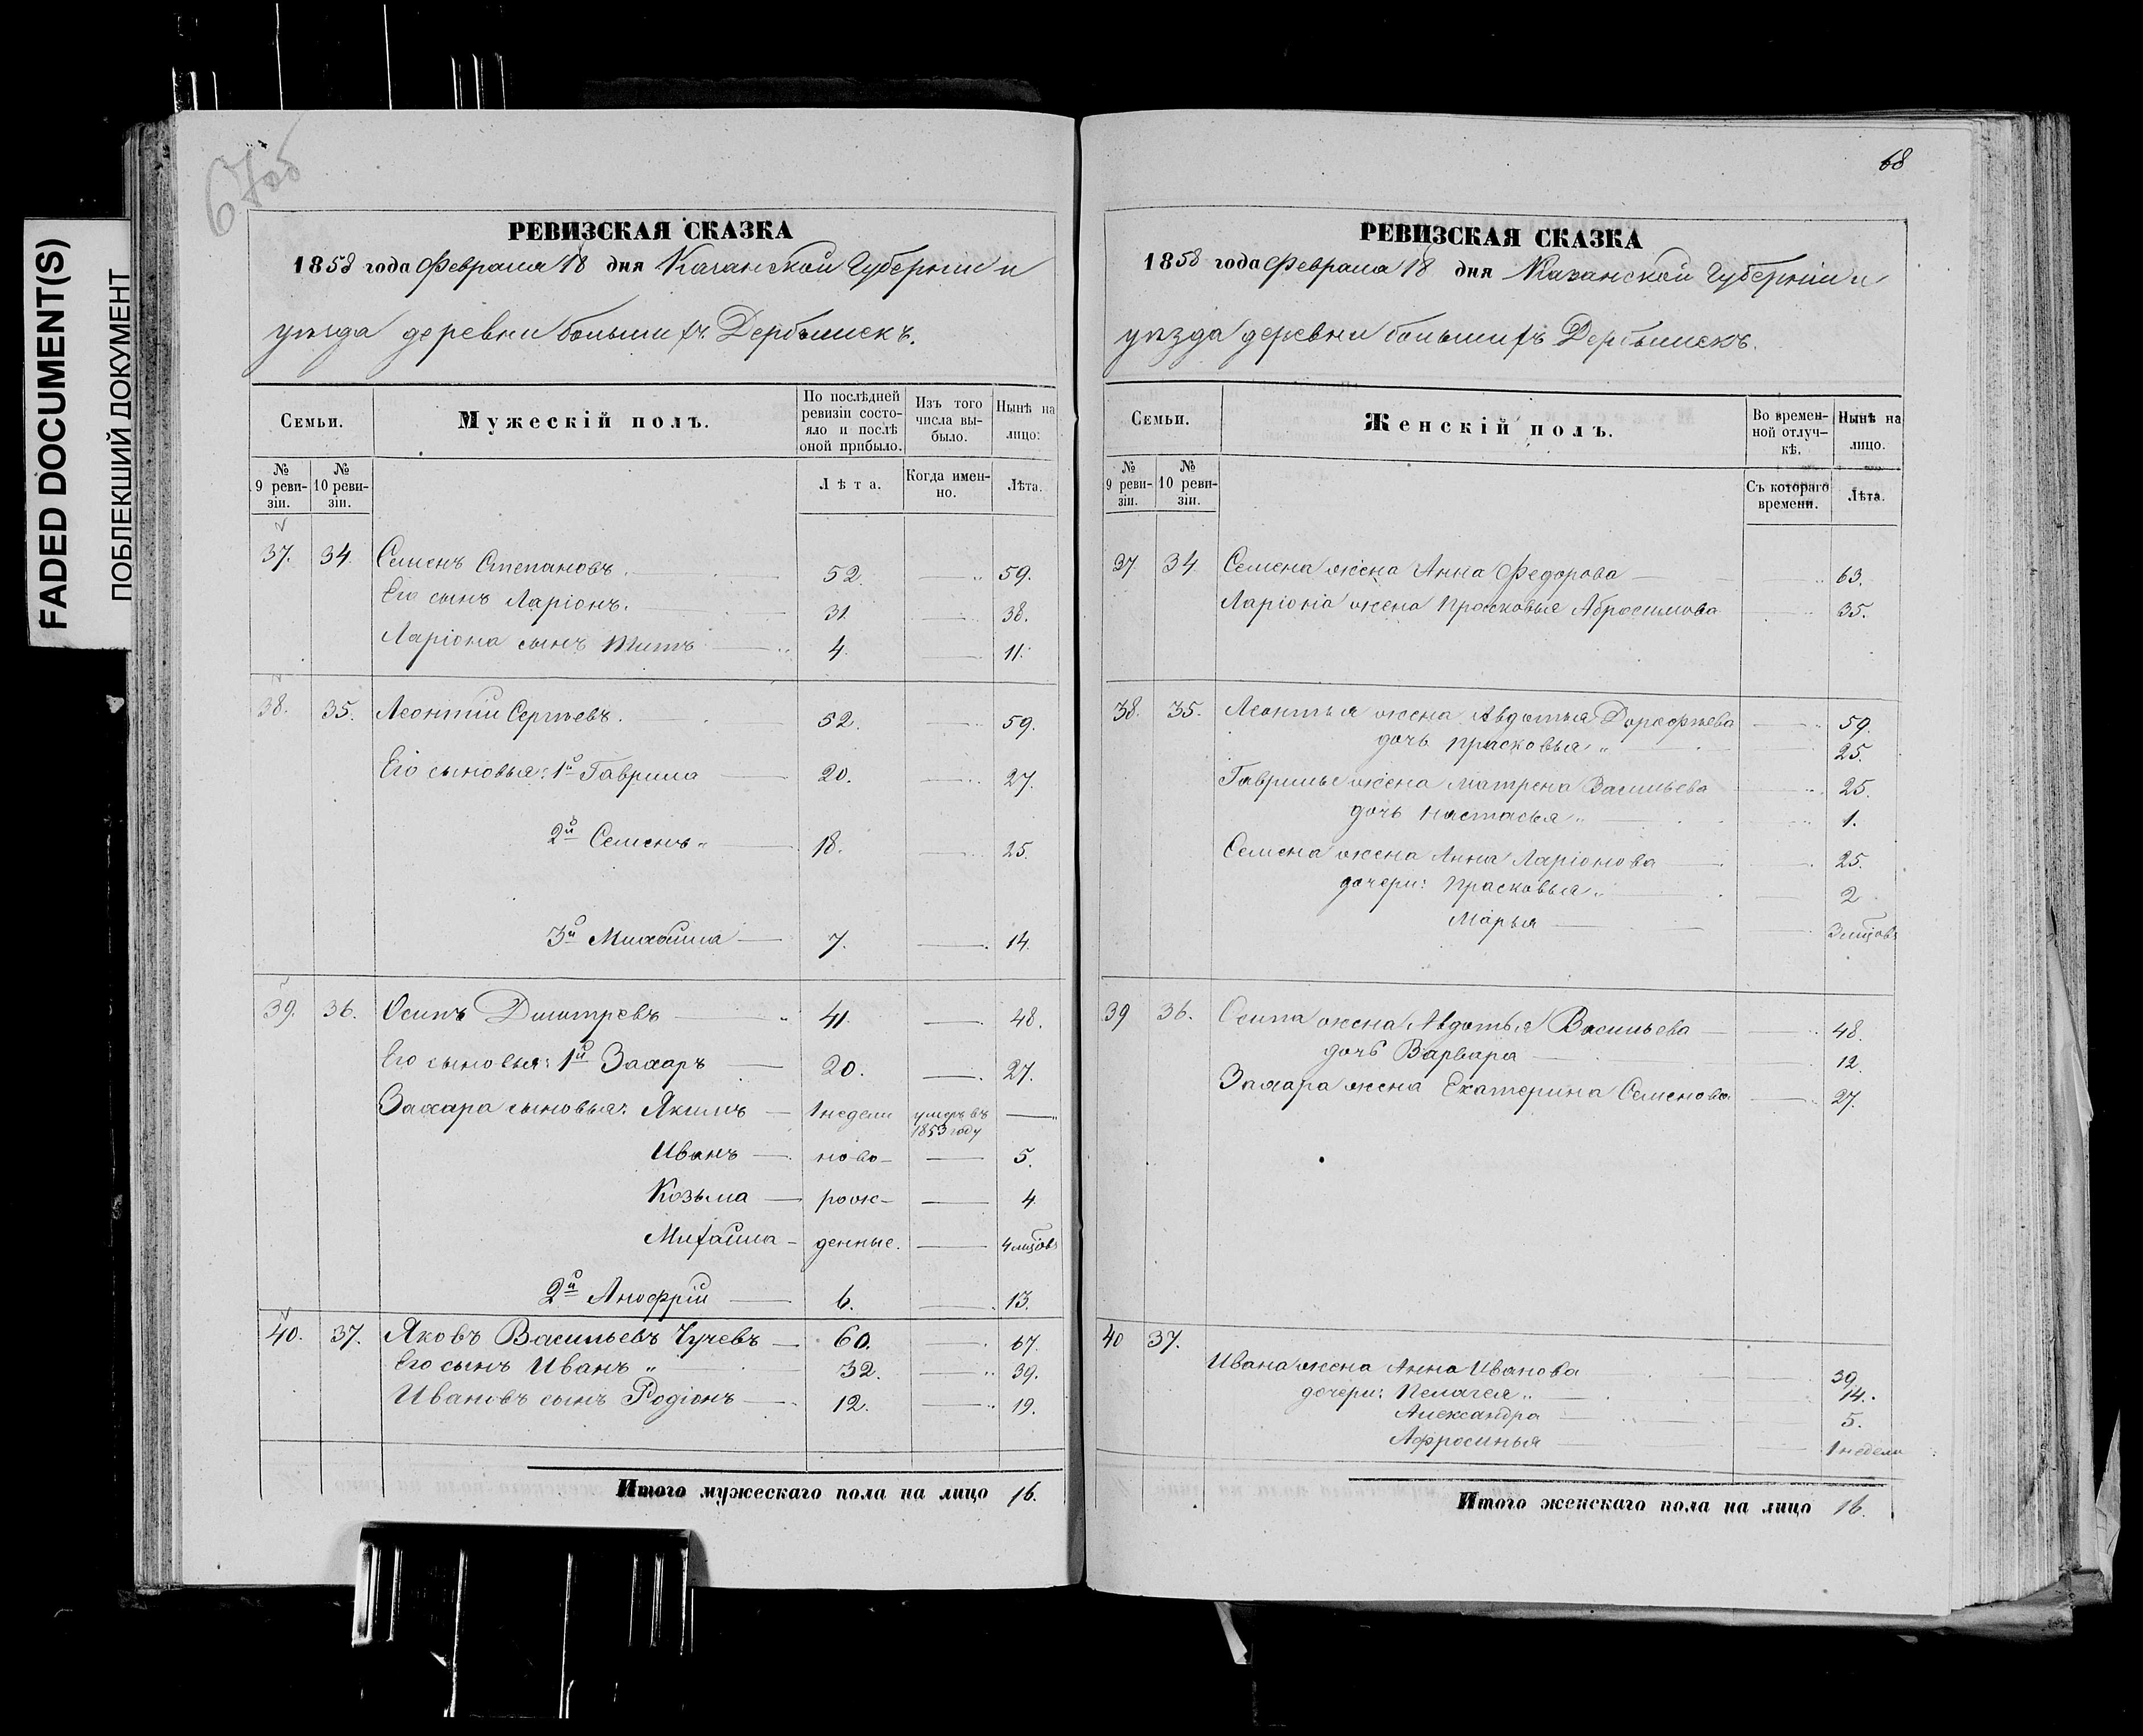 FADED DOCUMENT(S)
ПОБЛЕКШИЙ ДОКУМЕНТ
67об
РЕВИЗСКАЯ СКАЗКА
1858 года Февраля 18 дня Казанской Губерніи и
уѣзда деревни большихъ Дербышекъ.
Семьи.
Мужескій полъ.
По послѣдней ревизіи состояло и послѣ оной прибыло.
Изъ того числа выбыло.
Нынѣ на лицо:
№ 9 ревизіи.
№ 10 ревизіи.
Лѣта.
Когда именно.
Лѣта.
37. 34. Семенъ Степановъ. 52. 59.
Его сынъ Ларіонъ. 31. 38.
Ларіона сынъ Титъ 4. 11.
38. 35. Леонтій Сергѣевъ. 52. 59.
Его сыновья: 1й Гаврила 20. 27.
2й Семенъ 18. 25.
3й Михайла 7. 14.
39. 36. Осипъ Дмитревъ 41. 48.
Его сыновья: 1й Захаръ 20. 27.
Захара сыновья: Якимъ 1 недели умеръ въ 1853 году
Иванъ ново- 5.
Козьма рож- 4
Михайла денные. 4 мцовъ
2й Анофрій 6. 13.
40. 37. Яковъ Васильевъ Чучевъ 60. 67.
Его сынъ Иванъ „ 32. 39.
Ивановъ сынъ Родіонъ 12. 19.
Итого мужескаго пола на лицо 16.
68
РЕВИЗСКАЯ СКАЗКА
1858 года Февраля 18 дня Казанской Губерніи и
уѣзда деревни большихъ Дербышекъ.
Семьи.
Женскій полъ.
Во временной отлучкѣ.
Нынѣ на лицо.
№ 9 ревизіи.
№ 10 ревизіи.
Съ котораго времени.
Лѣта.
37 34 Семена жена Анна Федорова 63.
Ларіона жена Прасковья Абросимова 35.
38. 35. Леонтья жена Авдотья Дорофѣева 59.
дочь Прасковья „ 25.
Гаврилы жена Матрена Васильева 25.
дочь Настасья „ 1.
Семена жена Анна Ларіонова 25.
дочери: Прасковья „ 2
Марья 3 мцовъ
39 36. Осипа жена Авдотья Васильева 48.
дочь Варвара 12.
Захара жена Екатерина Семенова 27.
40 37.
Ивана жена Анна Иванова 39
дочери: Пелагея „ 14.
Александра 5.
Афросинья 1 недели
Итого женскаго пола на лицо 16.